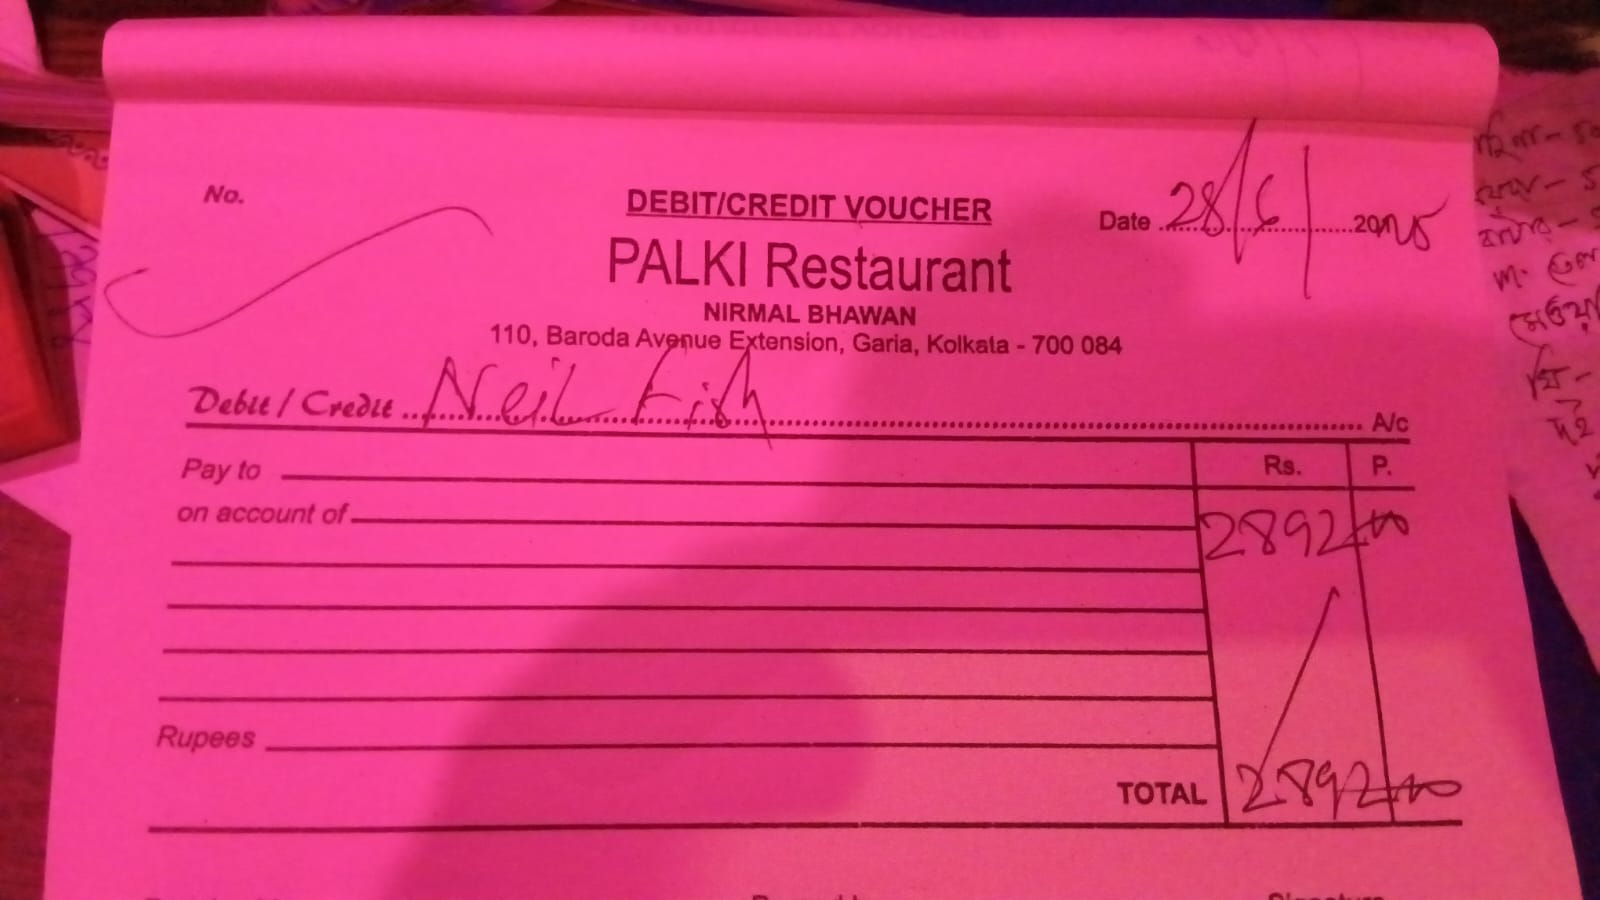 No.
DEBIT/CREDIT VOUCHER
Date 28/6/2025
PALKI Restaurant
NIRMAL BHAWAN
110, Baroda Avenue Extension, Garia, Kolkata - 700 084
Debit / Credit Neil Fish A/c
Rs. P.
Pay to
on account of
2892/00
Rupees
TOTAL 2892/00
Signature